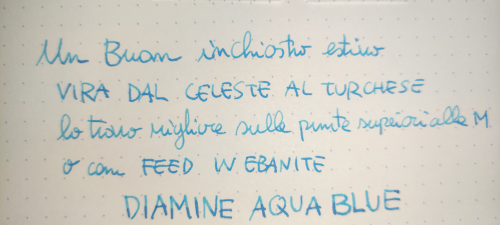 Un Buon inchiostro estivo
VIRA DAL CELESTE AL TURCHESE
lo trovo migliore sulle punte superiori alla M
o con FEED IN EBANITE
DIAMINE AQUA BLUE